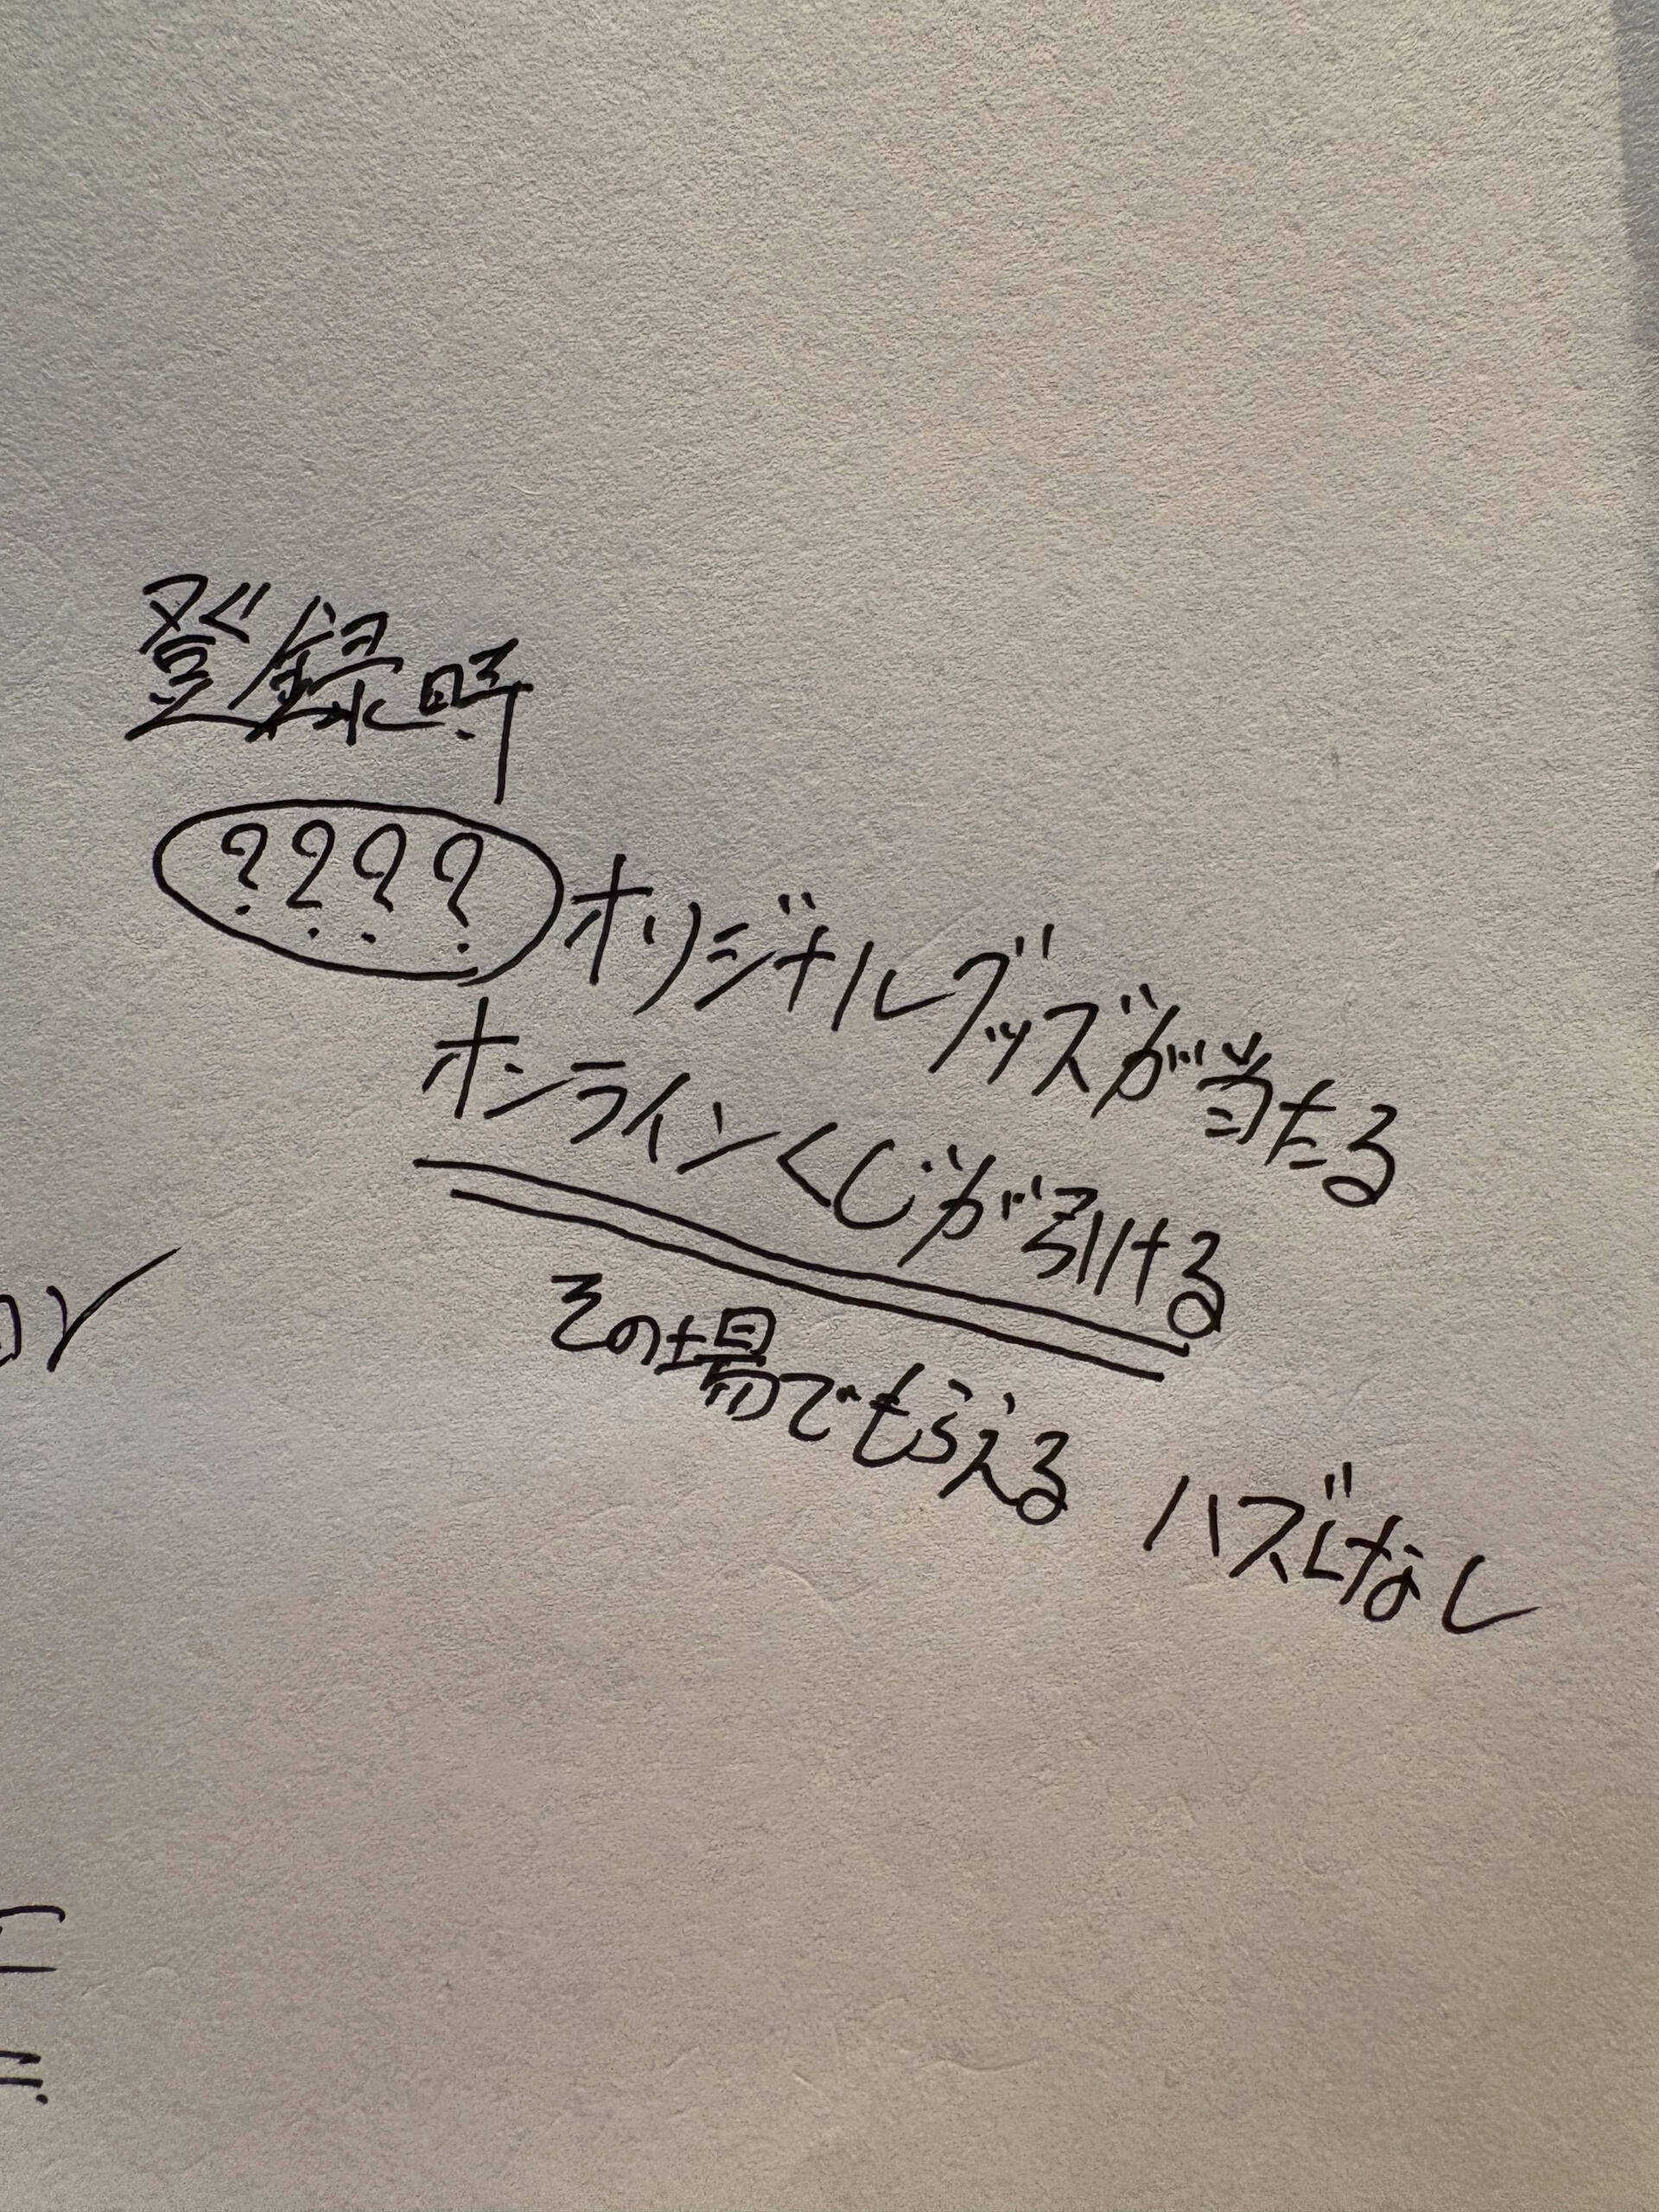 登録時
???? オリジナルグッズが当たる
オンラインくじが引ける
その場でもらえる ハズレなし